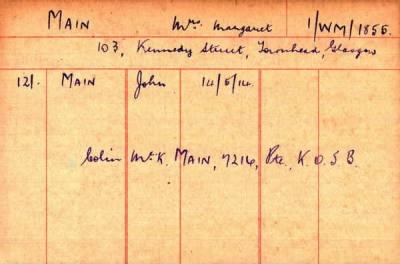 MAIN Mrs. Margaret 1/WM/1855.
103, Kennedy Street, Townhead, Glasgow
12/. MAIN John 14/5/14.
Colin McK. MAIN, 7214, Pte, K.O.S.B.